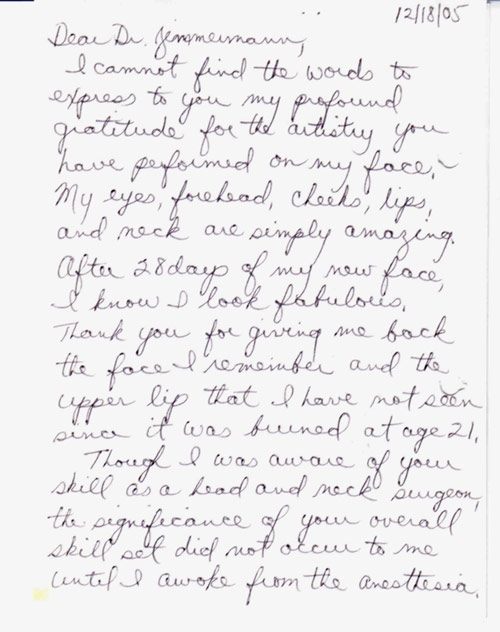 12/18/05
Dear Dr. Zimmermann,
I cannot find the words to
express to you my profound
gratitude for the artistry you
have performed on my face.
My eyes, forehead, cheeks, lips,
and neck are simply amazing.
After 28 days of my new face,
I know I look fabulous.
Thank you for giving me back
the face I remember and the
upper lip that I have not seen
since it was burned at age 21.
Though I was aware of your
skill as a head and neck surgeon,
the significance of your overall
skill set did not occur to me
until I awoke from the anesthesia.